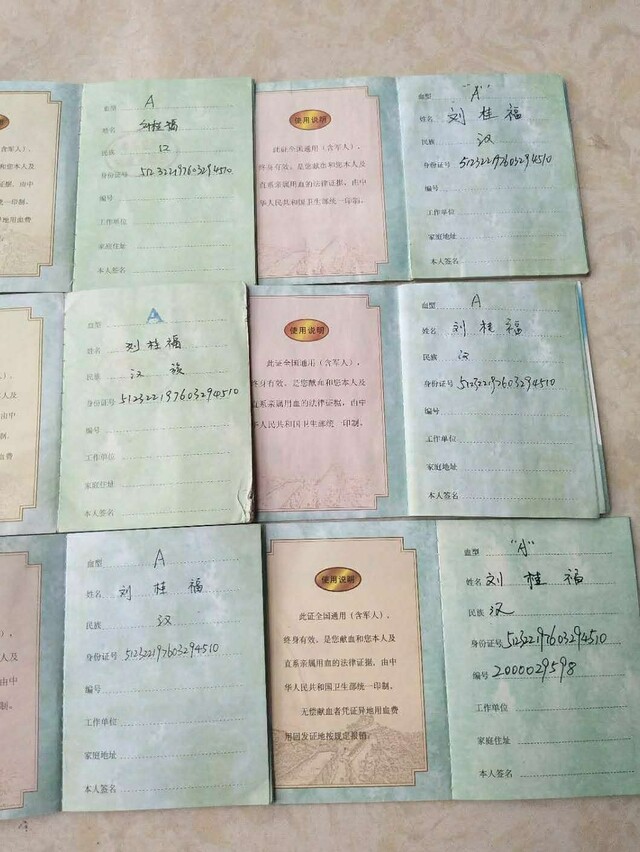 (含军人)、
和您本人及
据。由中
制。
血型 A
姓名 刘桂福
民族 汉
身份证号 512322197603294510
编号
工作单位
家庭住址
本人签名
使用说明
此证全国通用(含军人),
终身有效、是您献血和您本人及
直系亲属用血的法律证据。由中
华人民共和国卫生部统一印制。
血型 "A"
姓名 刘桂福
民族 汉
身份证号 512322197603294510
编号
工作单位
家庭地址
本人签名
血型 A
姓名 刘桂福
民族 汉族
身份证号 512322197603294510
编号
工作单位
家庭住址
本人签名
使用说明
此证全国通用(含军人),
终身有效、是您献血和您本人及
直系亲属用血的法律证据。由中
华人民共和国卫生部统一印制。
血型 A
姓名 刘桂福
民族 汉
身份证号 512322197603294510
编号
工作单位
家庭地址
本人签名
血型 A
姓名 刘桂福
民族 汉
身份证号 512322197603294510
编号
工作单位
家庭地址
本人签名
使用说明
此证全国通用(含军人),
终身有效、是您献血和您本人及
直系亲属用血的法律证据。由中
华人民共和国卫生部统一印制。
无偿献血者凭证异地用血费
用回发证地按规定报销。
血型 "A"
姓名 刘桂福
民族 汉
身份证号 512322197603294510
编号 2000029598
工作单位
家庭住址
本人签名